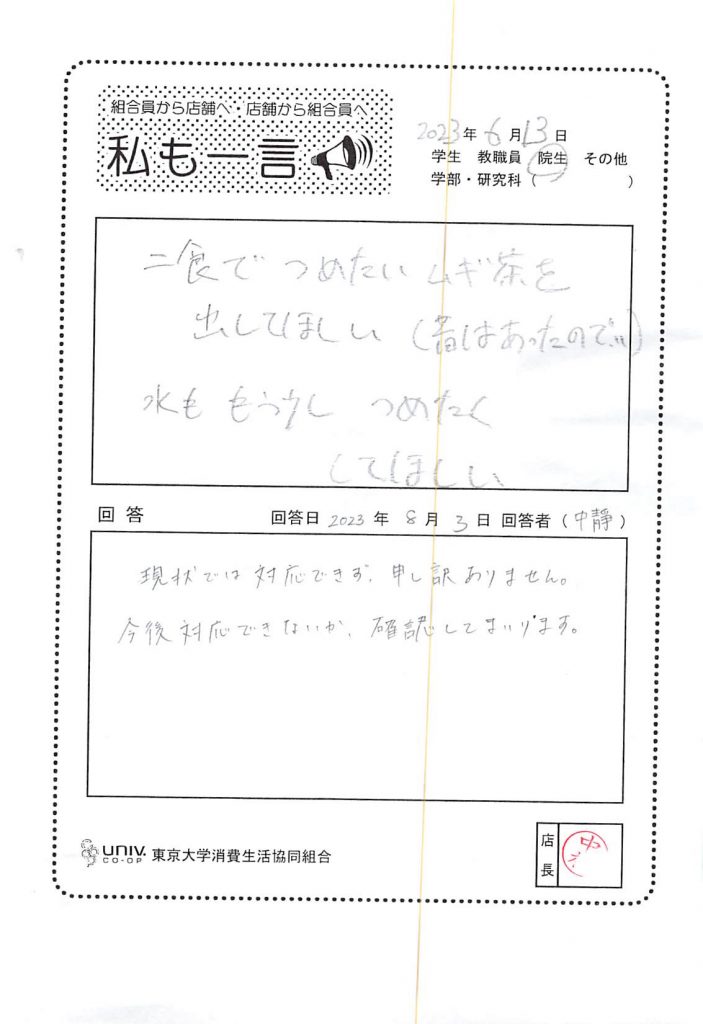 組合員から店舗へ・店舗から組合員へ
私も一言
2023年6月13日
学生 教職員 院生 その他
学部・研究科( )
二食で つめたい ムギ茶を
出してほしい (昔はあったので…)
水も もう少し つめたく
してほしい
回答 回答日 2023年 8月 3日 回答者(中靜)
現状では対応できず、申し訳ありません。
今後対応できないか、確認してまいります。
UNIV. CO-OP 東京大学消費生活協同組合
店長